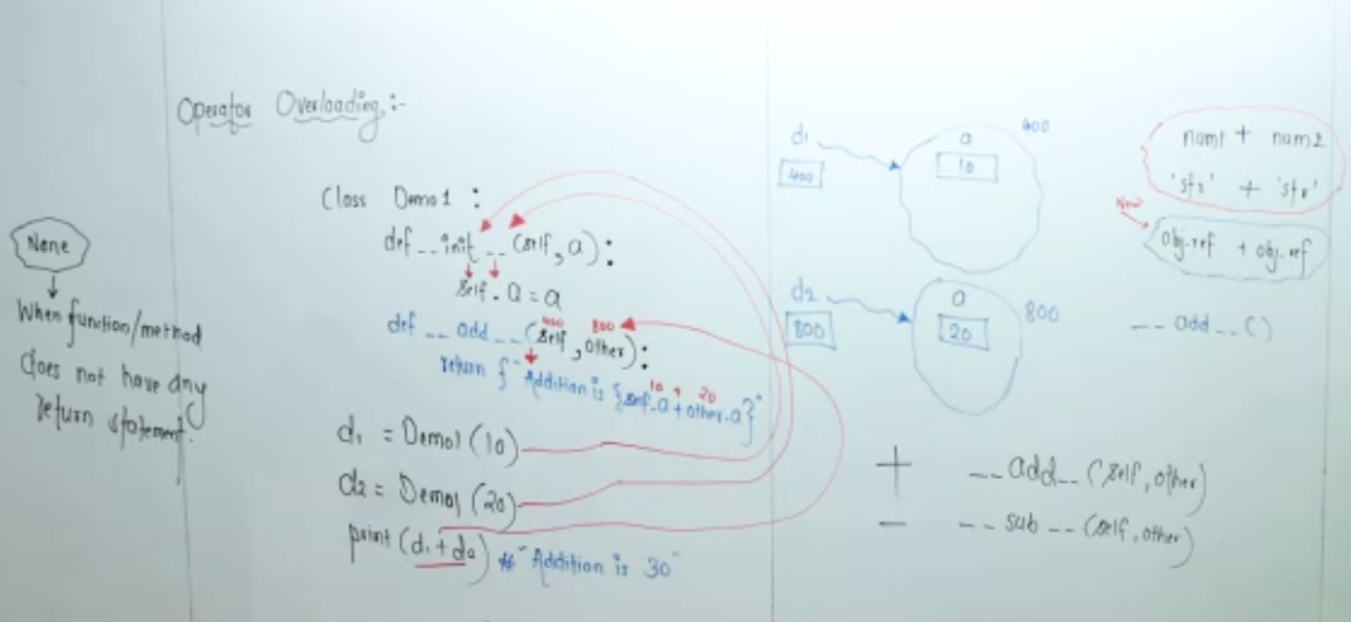 Operator Overloading:-
None
When function/method
does not have any
return statement.
Class Demo1 :
def __init__(self, a):
self.a = a
def __add__(self, other):
400 800
return f"Addition is {self.a + other.a}"
10 + 20
d1 = Demo1(10)
d2 = Demo1(20)
print(d1+d2) # "Addition is 30"
d1
400
a
10
400
d2
800
a
20
800
num1 + num2
'str' + 'str'
New
obj-ref + obj-ref
__add__()
+ __add__(self, other)
- __sub__(self, other)